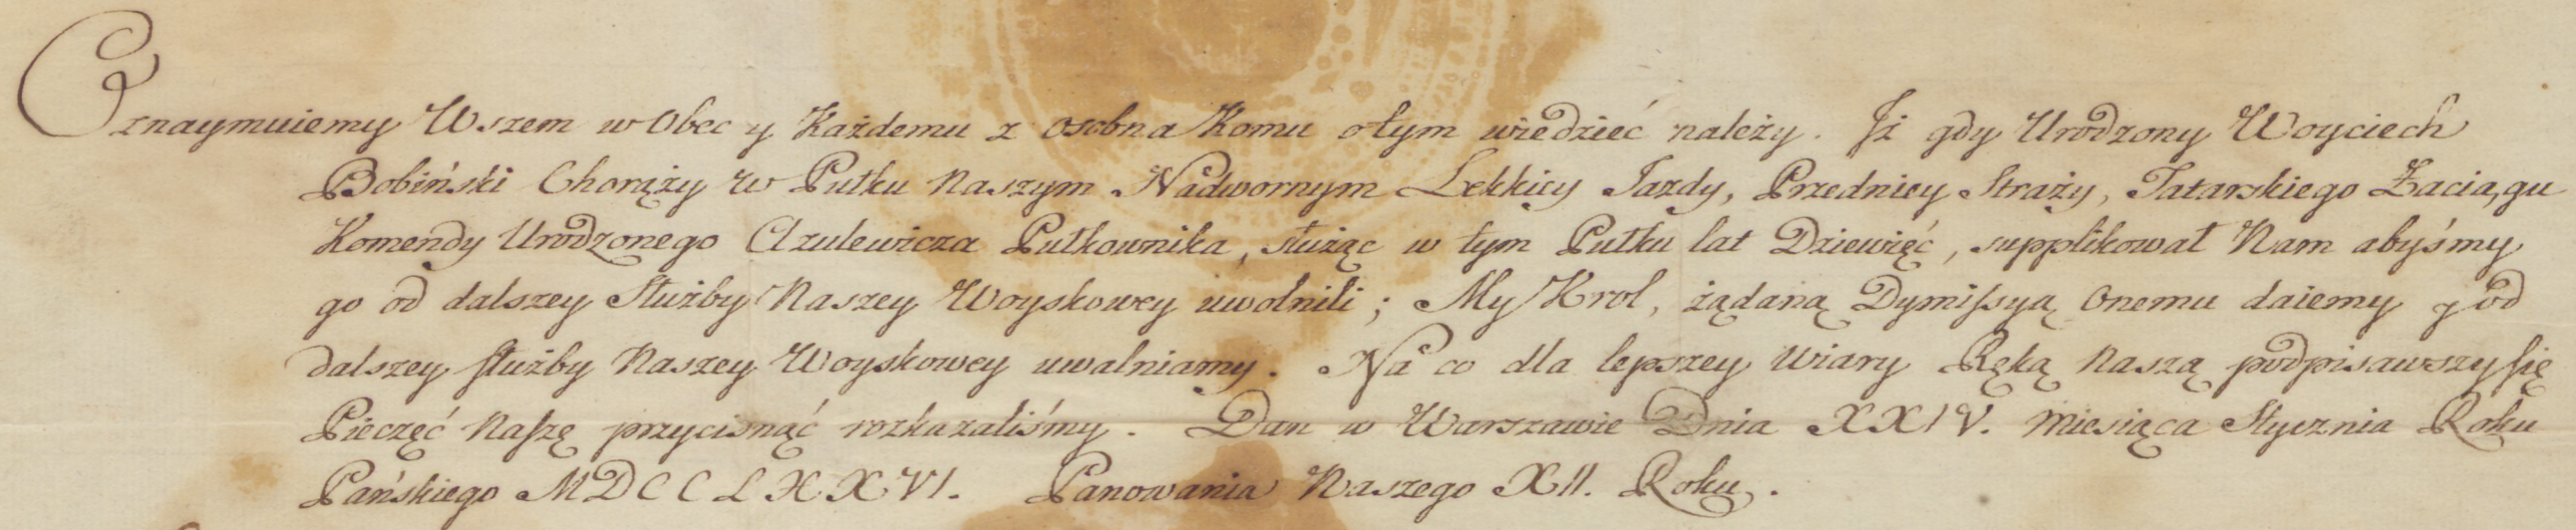 Oznaymuiemy Wszem w Obec y Każdemu z osobna Komu o tym wiedzieć należy. Iż gdy Urodzony Woyciech
Bobiński Chorąży w Pułku Naszym Nadwornym Lekkiey Jazdy, Przedniey Straży, Tatarskiego Zaciągu
Komendy Urodzonego Azulewicza Pułkownika, służąc w tym Pułku lat Dziewięć, supplikował Nam abyśmy
go od dalszey Służby Naszey Woyskowey uwolnili; My Krol, żądaną Dymissyą Onemu daiemy y od
dalszey służby Naszey Woyskowey uwalniamy. Na co dla lepszey wiary Ręką Naszą podpisawszy się
Pieczęć Naszę przycisnąć rozkazaliśmy. Dan w Warszawie Dnia XXIV. Miesiąca Stycznia Roku
Pańskiego MDCCLXXVI. Panowania Naszego XII. Roku.